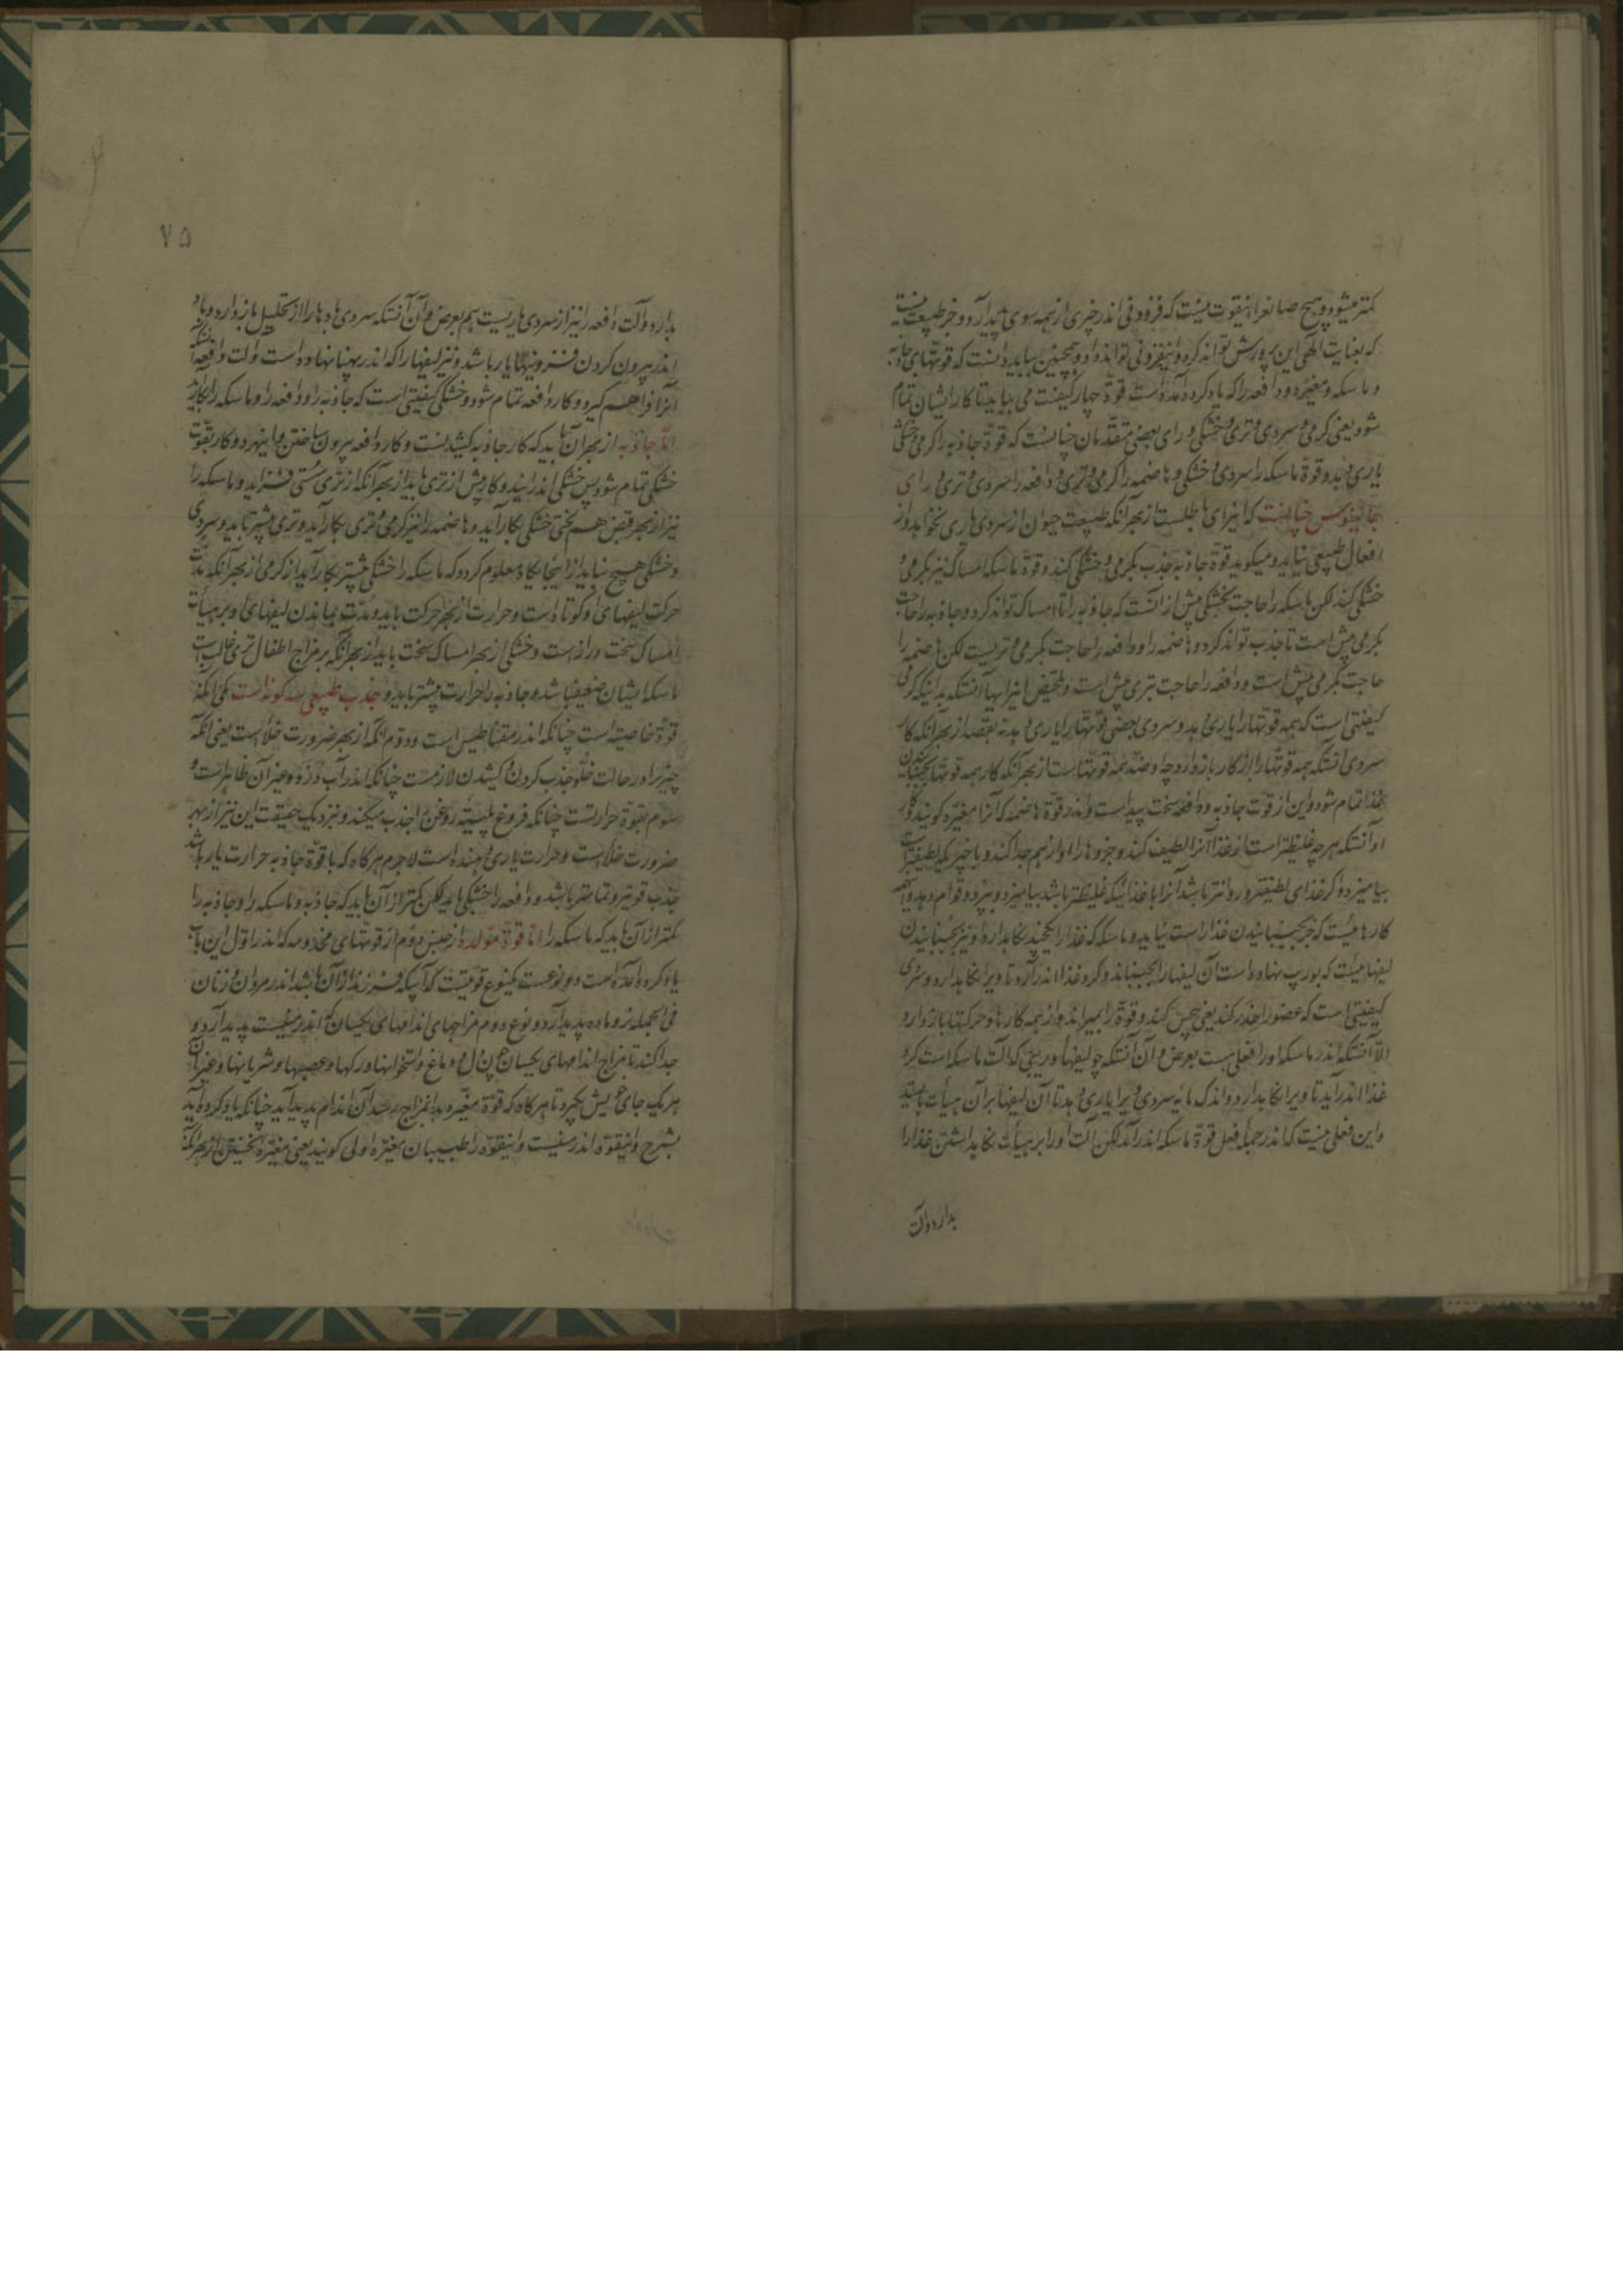 کمتر میشود و هیچ صانع را اینقوت نیست که فزونی اندر چیزی از همه سوی پدید آرد و جز طبیعت نیست
که بعنایت الهی این پرورش تواند کرد و اینفزونی تواند داد و همچنین بباید دانست که قوتهای جاذبه
و ماسکه و مغیره و دافعه را که یاد کرده آمده است قوة چهار کیفیت می بباید تا کار ایشان تمام
شود یعنی گرمی و سردی و تری و خشکی و رای بعضی متقدمان چنانست که قوة جاذبه را گرمی و خشکی
یاری دهد و قوة ماسکه را سردی و خشکی و هاضمه را گرمی و تری و دافعه را سردی و تری و رای
جالینوس چنانست که این رای باطلست از بهر آنکه طبیعت حیوان از سردی یاری نخواهد و از
افعال طبیعی نیاید و میگوید قوة جاذبه جذب بگرمی و خشکی کند و قوة ماسکه امساک نیز بگرمی و
خشکی کند لکن ماسکه را حاجت بخشکی بیش از آنست که جاذبه را تا امساک تواند کرد و جاذبه را حاجت
بگرمی بیش است تا جذب تواند کرد و هاضمه را و دافعه را حاجت بگرمی و تریست لکن هاضمه را
حاجت بگرمی بیش است و دافعه را حاجت بتری بیش است و ملخص این رایها آنستکه بدانیکه گرمی
کیفیتی است که همه قوتها را یاری دهد و سردی بعضی قوتها را یاری دهد نه بقصد از بهر آنکه کار
سردی آنستکه همه قوتها را از کار باز دارد چه او ضد همه قوتهاست از بهر آنکه کار همه قوتها بجنبانیدن
غذا تمام شود و این از قوت جاذبه و دافعه سخت پیداست و اندر قوة هاضمه که آنرا مغیره گویند کار
او آنستکه هرچه غلیظتر است از غذا آنرا لطیف کند و جزوها را از هم جدا کند و با چیزیکه لطیفتر است
بیامیزد و اگر غذای لطیفتر و روانتر باشد آنرا با غذائیکه غلیظتر باشد بیامیزد و بپزد و قوام دهد و اینهمه
کارهائیست که جز بجنبانیدن غذا راست نیاید و ماسکه که غذا را نجنبد نگاه دارد او نیز بجنبانیدن
لیفهائیست که بوریب نهاده است آن لیفها را بجنباند و گرد غذا اندر آرد تا ویرا نگاه بدارد و سردی
کیفیتی است که عضو را خدر کند یعنی بیحس کند و قوة را بمیراند و از همه کارها و حرکتها باز دارد
الا آنستکه اندر ماسکه او را فعلی هست بعرض و آن آنستکه چو لیفهای وریبی که آلت ماسکه است گرد
غذا اندر آید تا ویرا نگاه بدارد و اندک مایه سردی ویرا یاری دهد تا آن لیفها بر آن هیأت بایستد
و این فعلی نیست که اندر جمله فعل قوة ماسکه اندر آمد لکن آلت او را بر هیأت نگاهداشتن غذا را
بدارد و آلت
۷۵
بدارد و آلت دافعه را نیز از سردی یاریست هم بعرض و آن آنستکه سردی بادها را از تحلیل باز دارد و باد
اندر بیرون کردن فزونیها یار باشد و نیز لیفها را که اندر پهنا نهاده است و آلت دافعه است
آنرا فراهم گیرد و کار دافعه تمام شود و خشکی کیفیتی است که جاذبه را و دافعه را و ماسکه را بکار آید
اما جاذبه از بهر آن باید که کار جاذبه کشیدنست و کار دافعه بیرون ساختن و اینهر دو کار بقوت
خشکی تمام شود پس خشکی اندر ایندو کار بیش از تری باید از بهر آنکه از تری سستی فزاید و ماسکه را
نیز از بهر قبض هم لختی خشکی بکار آید و هاضمه را نیز گرمی و تری بکار آید و تری بیشتر باید و سردی
و خشکی هیچ نباید از اینجایگاه معلوم گردد که ماسکه را خشکی بیشتر بکار آید از گرمی از بهر آنکه مدت
حرکت لیفهای او کوتاه است و حرارت از بهر حرکت باید و مدت بماندن لیفهای او بر هیأت
امساک سخت دراز است و خشکی از بهر امساک سخت باید از بهر آنکه بر مزاج اطفال تری غالب است
ماسکه ایشان ضعیف باشد و جاذبه را حرارت بیشتر باید و جذب طبیعی سه گونه است یکی آنکه
قوة خاصیة است چنانکه اندر مقناطیس است و دوم آنکه از بهر ضرورت خلأ است یعنی آنکه
چیز را در حالت خلو جذب کردن و کشیدن لازمست چنانکه اندر آب دزد و غیر آن ظاهر است و
سوم بقوة حرارتست چنانکه فروغ پلیته روغن را جذب میکند و نزدیک حقیقت این نیز از بهر
ضرورت خلأ است و حرارت یاری دهنده است لاجرم هرگاه که با قوة جاذبه حرارت یار باشد
جذب قویتر و تمامتر باشد و دافعه را خشکی باید لکن کمتر از آن باید که جاذبه و ماسکه را و جاذبه را
کمتر از آن باید که ماسکه را اما قوة مولده از جنس دوم از قوتهای مخدومه که اندر اول این باب
یاد کرده آمده است و دو نوعست یکنوع قوتیست که آبیکه فرزند از آن باشد اندر مردان و زنان
فی الجمله نر و ماده پدید آرد و نوع دوم مزاجهای اندامهای یکسان که اندر منیست پدید آرد و
جدا کند تا مزاج اندامهای یکسان چون دل و دماغ و استخوانها و رگها و عصبها و شریانها و غیر آن
هر یک جای خویش بگیرد تا هرگاه که قوة مغیره بدانمزاج رسد آن اندام پدید آید چنانکه یاد کرده آید
بشرح و اینقوة اندر منیست و اینقوة را طبیبان مغیره اولی گویند یعنی مغیره نخستین از بهر آنکه